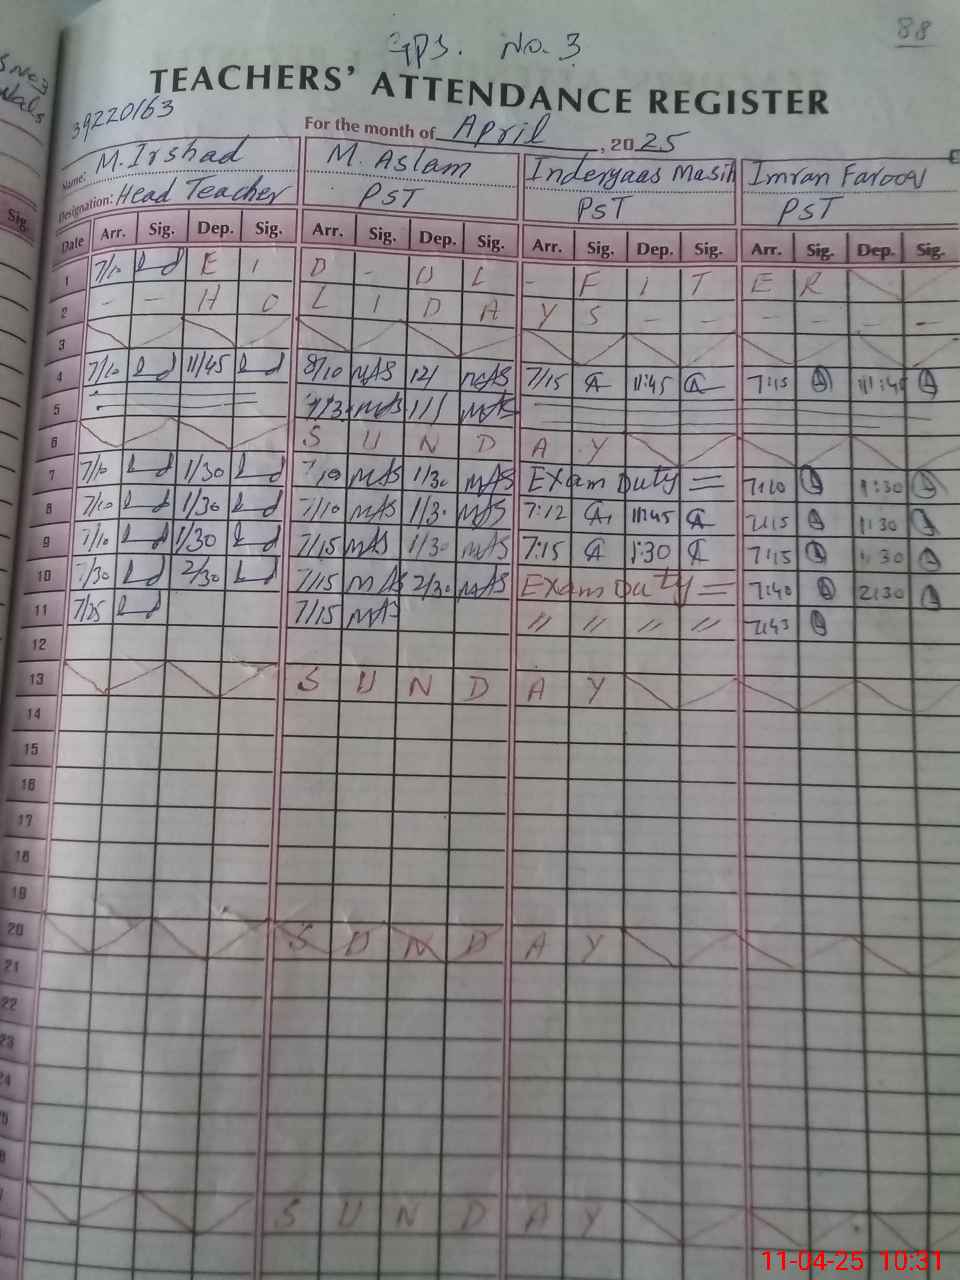 88
GPS. No. 3
TEACHERS' ATTENDANCE REGISTER
39220163
For the month of April, 2025
Name: M. Irshad M. Aslam Inderyaas Masih Imran Farooq
Designation: Head Teacher PST PST PST
Date Arr. Sig. Dep. Sig. Arr. Sig. Dep. Sig. Arr. Sig. Dep. Sig. Arr. Sig. Dep. Sig.
1 7/10 E I D - U L - F I T E R
2 - - H O L I D A Y S - - - - - -
3
4 7/10 11/45 8/10 MAS 12/ MAS 7/15 11:45 7:15 11:45
5 MAS MAS
6 S U N D A Y
7 7/10 1/30 7/10 MAS 1/30 MAS Exam Duty = 7:20 1:30
8 7/10 1/30 7/10 MAS 1/30 MAS 7:12 11:45 7:15 1:30
9 7/10 1/30 7/15 MAS 1/30 MAS 7:15 1:30 7:15 1:30
10 7/30 2/30 7/15 MAS 2/30 MAS Exam Duty = 7:40 2:30
11 7/25 7/15 MAS " " " " 7:43
12
13 S U N D A Y
14
15
16
17
18
19
20 S U N D A Y
21
22
23
24
S U N D A Y
11-04-25 10:31